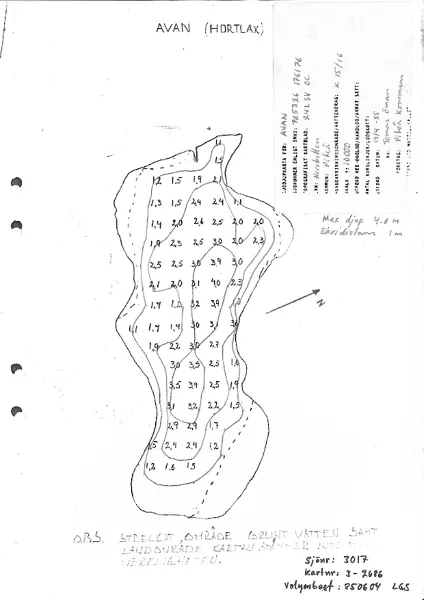 AVAN (HORTLAX)
DJUPKARTA FÖR: AVAN
SJÖNUMMER ENLIGT SMHI:
TOPOGRAFISKT KARTBLAD:
LÄN: Norrbotten
KOMMUN: Piteå
K 15/16
SKALA 1: 10000
UTFÖRD DATUM: 19/4-85
AV: Tomas Öman
FÖRETAG: Piteå Kommun
Max djup 4.0 m
Ekvidistans 1m
1,2 1,5 1,9 2,1
1,3 1,5 2,4 2,4 1,1
1,4 2,0 2,6 2,5 2,0 2,0
1,9 2,3 2,5 3,0 2,0 2,3
2,5 2,5 3,0 3,9 3,0
2,1 2,0 3,1 4,0 2,3
1,7 1,2 3,2 3,9
1,1 1,7 1,4 3,0 3,1
1,9 2,2 3,0 2,3
3,0 3,5 2,5 1,6
3,5 3,9 2,5 1,9
3,1 3,2 2,2 1,5
2,9 2,9 1,7
1,5 2,4 2,4 1,2
1,2 1,6 1,5
N
O.B.S. STRECKAT OMRÅDE GRUNT VATTEN SAMT
LANDOMRÅDE KARTAN STÄMMER INTE I
VERKLIGHETEN.
Sjönr: 3017
Kartnr: 3-2686
Volymbest: 850604 LGS